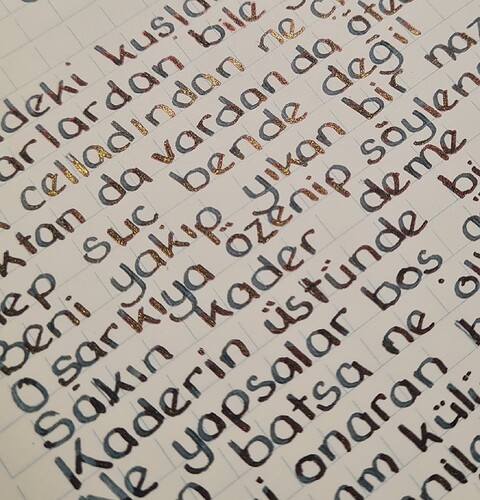 deki kusla
arlardan bile
celladından ne
ktan da vardan da öte
ep suc bende değil
Beni yakıp yıkan bir naz
O sarkıya özenip söylen
Sakın kader deme
Kaderin üstünde bi
Ne yapsalar bos
n batsa ne olu
i onaran
m külü
nila